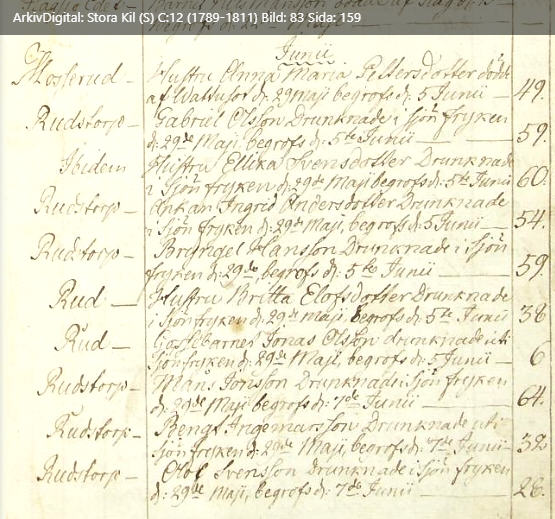 ArkivDigital: Stora Kil (S) C:12 (1789-1811) Bild: 83 Sida: 159
Junii
Mosserud - Hustru Anna Maria Pettersdotter dödde
af Wattusot d: 29 Maji begrofs d: 5 Junii - 49.
Rudstorp - Gabriel Olsson Drunknade i Sjön fryken
d: 29de Maji begrofs d: 5te Junii - 59.
Ibidem Hustru Ellika Svensdotter Drunknade
i Sjön fryken d: 29de Maji begrofs d: 5te Junii 60.
Rudstorp - Enkan Ingrid Andersdotter Drunknade
i Sjön fryken d: 29de Maji, begrofs d: 5 Junii - 54.
Rudstorp - Bryngel Hansson Drunknade i Sjön
fryken d: 29de, begrofs d: 5te Junii - 59.
Rud - Hustru Britta Elofsdotter Drunknade
i Sjön fryken d: 29de Maji, begrofs d: 5te Junii 38
Rud - Gossebarnet Jonas Olsson drunknade uti
Sjön fryken d: 29de Maji, begrofs d: 5 Junii - 6
Rudstorp - Måns Jonsson Drunknade i Sjön fryken
d: 29de Maji begrofs d: 7de Junii - 64.
Rudstorp - Bengt Ingemarsson Drunknade uti
Sjön fryken d: 29de Maji, begrofs d: 7de Junii - 32
Rudstorp - Olof Svensson Drunknade i Sjön fryken
d: 29de Maji, begrofs d: 7de Junii - 28.